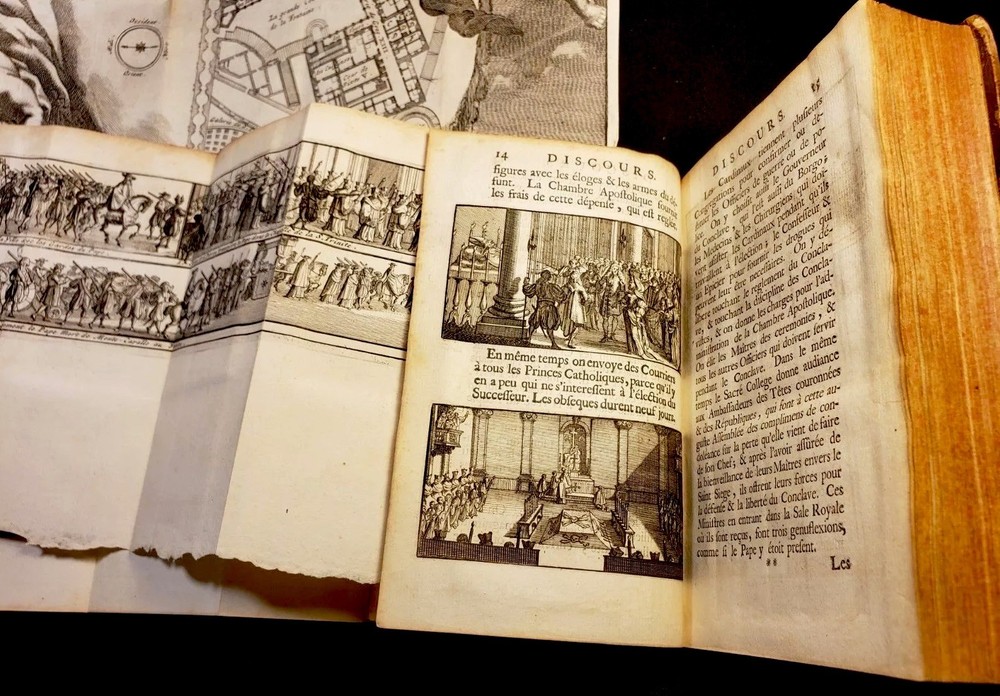 Occident
Orient
La grande
de la Fontaine
de la Trinité
14 DISCOURS.
figures avec les éloges & les armes du dé-
funt. La Chambre Apoſtolique fournit
les frais de cette dépenſe, qui eſt reglée.
En même temps on envoye des Courriers
à tous les Princes Catholiques, parce qu'il y
en a peu qui ne s'intereſſent à l'élection du
Succeſſeur. Les obſeques durent neuf jours.
DISCOURS. 15
Les Cardinaux tiennent pluſieurs
Congregations pour confirmer ou dé-
Officiers de guerre ou de po-
On y choiſit le Gouverneur
du Conclave & celui du Borgo;
les Medecins & les Chirurgiens qui doi-
vent aſſiſter les Cardinaux pendant qu'ils
à l'élection; le Confeſſeur &
pour fournir les drogues qui
peuvent leur être neceſſaires. On y dé-
libere touchant le reglement du Concla-
ve, & touchant la diſcipline des Concla-
viſtes, & on donne les charges pour l'ad-
miniſtration de la Chambre Apoſtolique.
On élit les Maîtres des ceremonies, &
tous les autres Officiers qui doivent ſervir
pendant le Conclave. Dans le même
temps le Sacré College donne audiance
aux Ambaſſadeurs des Têtes couronnées
& des Républiques, qui font à cette au-
guſte Aſſemblée des complimens de con-
doléance ſur la perte qu'elle vient de faire
de ſon Chef; & après l'avoir aſſûrée de
la bienveillance de leurs Maîtres envers le
Saint Siege, ils offrent leurs forces pour
la défenſe & la liberté du Conclave. Ces
Miniſtres en entrant dans la Sale Royale
où ils ſont reçus, font trois genuflexions,
comme ſi le Pape y étoit preſent.
Les